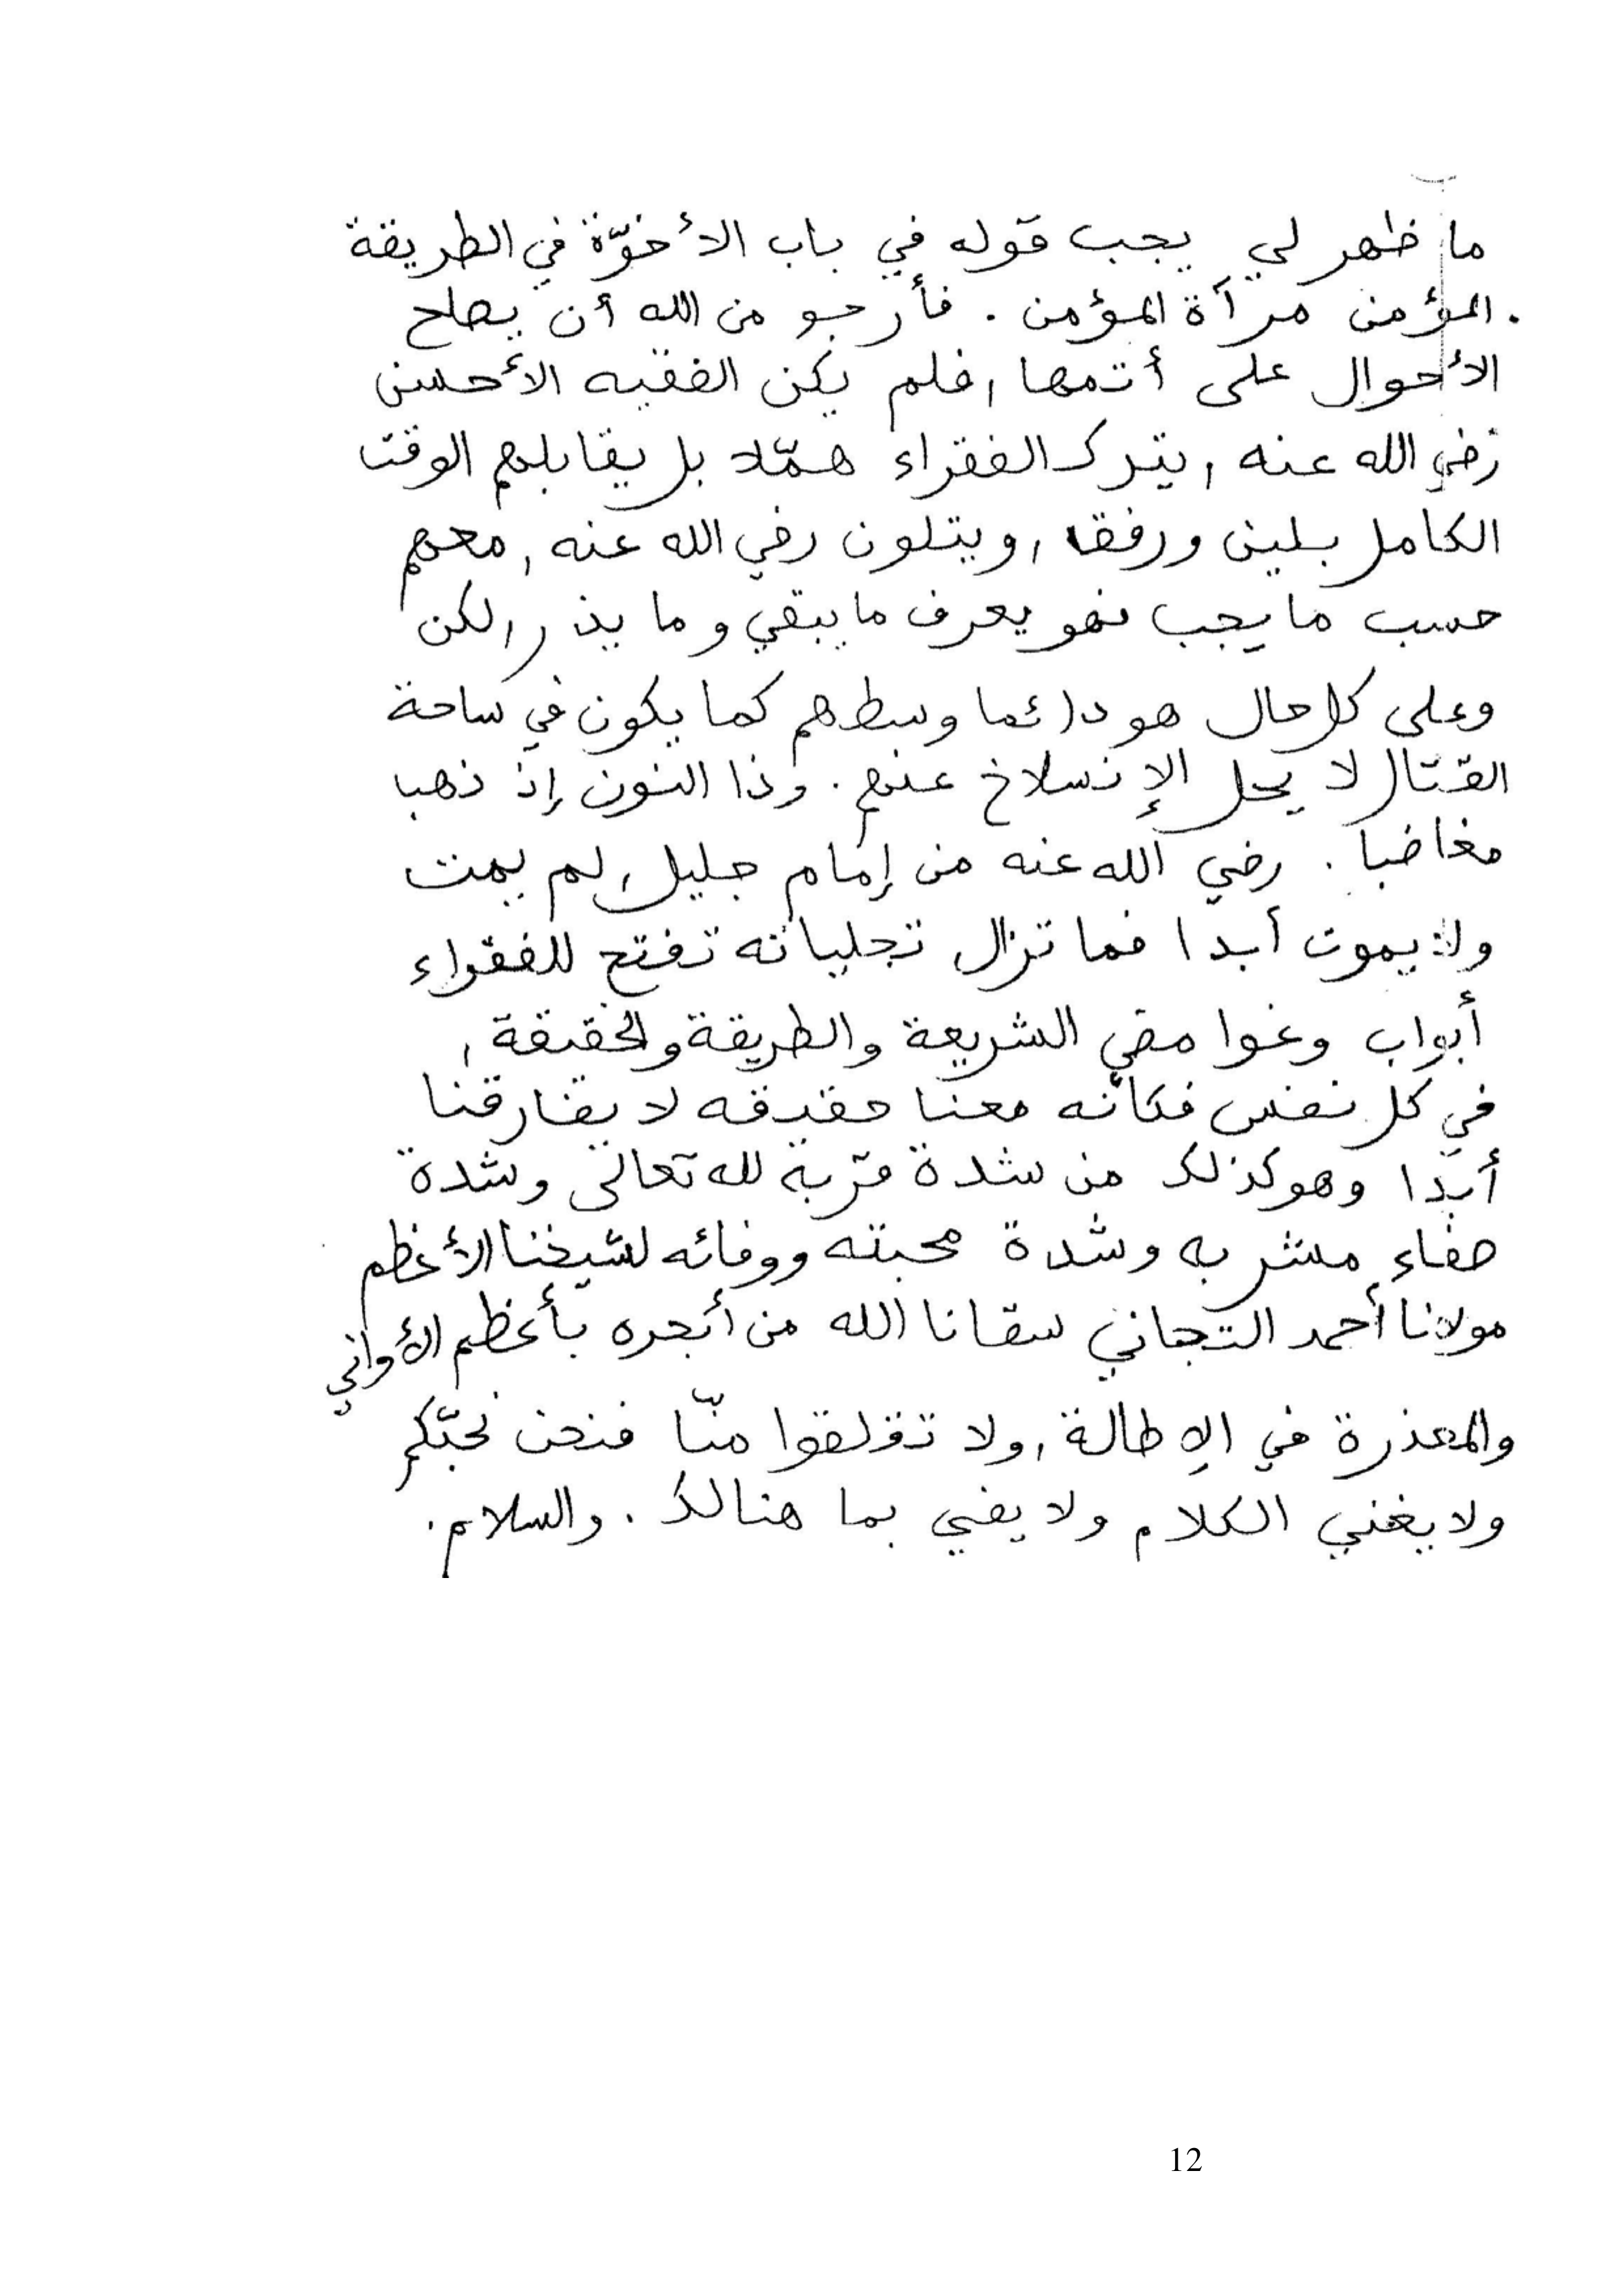 ما ظهر لي يجب قوله في باب الأخوّة في الطريقة
. المؤمن مرآة المؤمن . فأرجو من الله أن يصلح
الأحوال على أتمها , فلم يكن الفقيه الأحسن
رضي الله عنه , يترك الفقراء همّلا بل يقابلهم الوقت
الكامل بلين ورفقا , ويتلون رضي الله عنه , معهم
حسب ما يجب فهو يعرف ما يبقي وما يذر , لكن
وعلى كل حال هو دائما وسطهم كما يكون في ساحة
القتال لا يحل الإنسلاخ عنهم . وذا النون إذ ذهب
مغاضبا . رضي الله عنه من إمام جليل , لم يمت
ولا يموت أبدا فما تزال تجلياته تفتح للفقراء
أبواب وغوامض الشريعة والطريقة والحقيقة ,
في كل نفس فكأنّه معنا حقيقه لا يفارقنا
أبدا وهو كذلك من شدة قربة لله تعالى وشدة
صفاء مشربه وشدة محبته ووفائه لشيخنا الأعظم
مولانا أحمد التجاني سقانا الله من أبحره بأعظم الأواني
والمعذرة في الإطالة , ولا تقلقوا منّا فنحن نحبّكم
ولا يغني الكلام ولا يفي بما هنالك . والسلام .
12